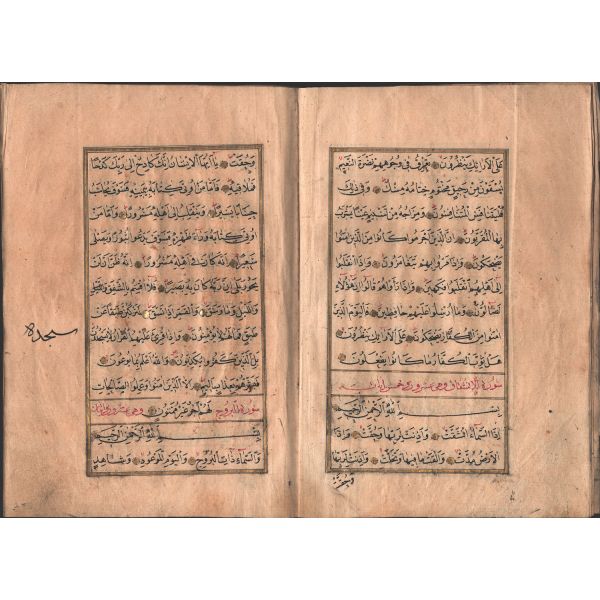 عَلَى الْاَرَائِكِ يَنْظُرُونَ تَعْرِفُ فِي وُجُوهِهِمْ نَضْرَةَ النَّعِيمِ
يُسْقَوْنَ مِنْ رَحِيقٍ مَخْتُومٍ خِتَامُهُ مِسْكٌ وَفِي ذٰلِكَ
فَلْيَتَنَافَسِ الْمُتَنَافِسُونَ وَمِزَاجُهُ مِنْ تَسْنِيمٍ عَيْنًا يَشْرَبُ
بِهَا الْمُقَرَّبُونَ اِنَّ الَّذِينَ اَجْرَمُوا كَانُوا مِنَ الَّذِينَ اٰمَنُوا
يَضْحَكُونَ وَاِذَا مَرُّوا بِهِمْ يَتَغَامَزُونَ وَاِذَا انْقَلَبُوا
اِلٰى اَهْلِهِمُ انْقَلَبُوا فَكِهِينَ وَاِذَا رَاَوْهُمْ قَالُوا اِنَّ هٰؤُلَاءِ
لَضَالُّونَ وَمَا اُرْسِلُوا عَلَيْهِمْ حَافِظِينَ فَالْيَوْمَ الَّذِينَ
اٰمَنُوا مِنَ الْكُفَّارِ يَضْحَكُونَ عَلَى الْاَرَائِكِ يَنْظُرُونَ
هَلْ ثُوِّبَ الْكُفَّارُ مَا كَانُوا يَفْعَلُونَ
سورة الانشقاق وهى عشرون وخمس ايات
بِسْمِ اللّٰهِ الرَّحْمٰنِ الرَّحِيمِ
اِذَا السَّمَاءُ انْشَقَّتْ وَاَذِنَتْ لِرَبِّهَا وَحُقَّتْ وَاِذَا
الْاَرْضُ مُدَّتْ وَاَلْقَتْ مَا فِيهَا وَتَخَلَّتْ وَاَذِنَتْ لِرَبِّهَا
وحقت
وَحُقَّتْ يَا اَيُّهَا الْاِنْسَانُ اِنَّكَ كَادِحٌ اِلٰى رَبِّكَ كَدْحًا
فَمُلَاقِيهِ فَاَمَّا مَنْ اُوتِيَ كِتَابَهُ بِيَمِينِهِ فَسَوْفَ يُحَاسَبُ
حِسَابًا يَسِيرًا وَيَنْقَلِبُ اِلٰى اَهْلِهِ مَسْرُورًا وَاَمَّا مَنْ
اُوتِيَ كِتَابَهُ وَرَاءَ ظَهْرِهِ فَسَوْفَ يَدْعُوا ثُبُورًا وَيَصْلٰى
سَعِيرًا اِنَّهُ كَانَ فِي اَهْلِهِ مَسْرُورًا اِنَّهُ ظَنَّ اَنْ لَنْ
يَحُورَ بَلٰى اِنَّ رَبَّهُ كَانَ بِهِ بَصِيرًا فَلَا اُقْسِمُ بِالشَّفَقِ
وَاللَّيْلِ وَمَا وَسَقَ وَالْقَمَرِ اِذَا اتَّسَقَ لَتَرْكَبُنَّ طَبَقًا عَنْ
طَبَقٍ فَمَا لَهُمْ لَا يُؤْمِنُونَ وَاِذَا قُرِئَ عَلَيْهِمُ الْقُرْاٰنُ لَا يَسْجُدُونَ
سجده
بَلِ الَّذِينَ كَفَرُوا يُكَذِّبُونَ وَاللّٰهُ اَعْلَمُ بِمَا يُوعُونَ
فَبَشِّرْهُمْ بِعَذَابٍ اَلِيمٍ اِلَّا الَّذِينَ اٰمَنُوا وَعَمِلُوا الصَّالِحَاتِ
سورة البروج لَهُمْ اَجْرٌ غَيْرُ مَمْنُونٍ وهى عشرون
بِسْمِ اللّٰهِ الرَّحْمٰنِ الرَّحِيمِ
وَالسَّمَاءِ ذَاتِ الْبُرُوجِ وَالْيَوْمِ الْمَوْعُودِ وَشَاهِدٍ